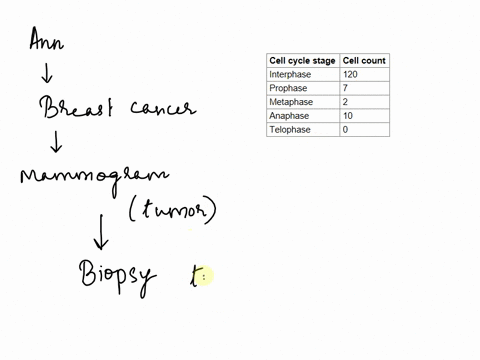 Ann
Breast cancer
Mammogram
(tumor)
Biopsy
Cell cycle stage Cell count
Interphase 120
Prophase 7
Metaphase 2
Anaphase 10
Telophase 0